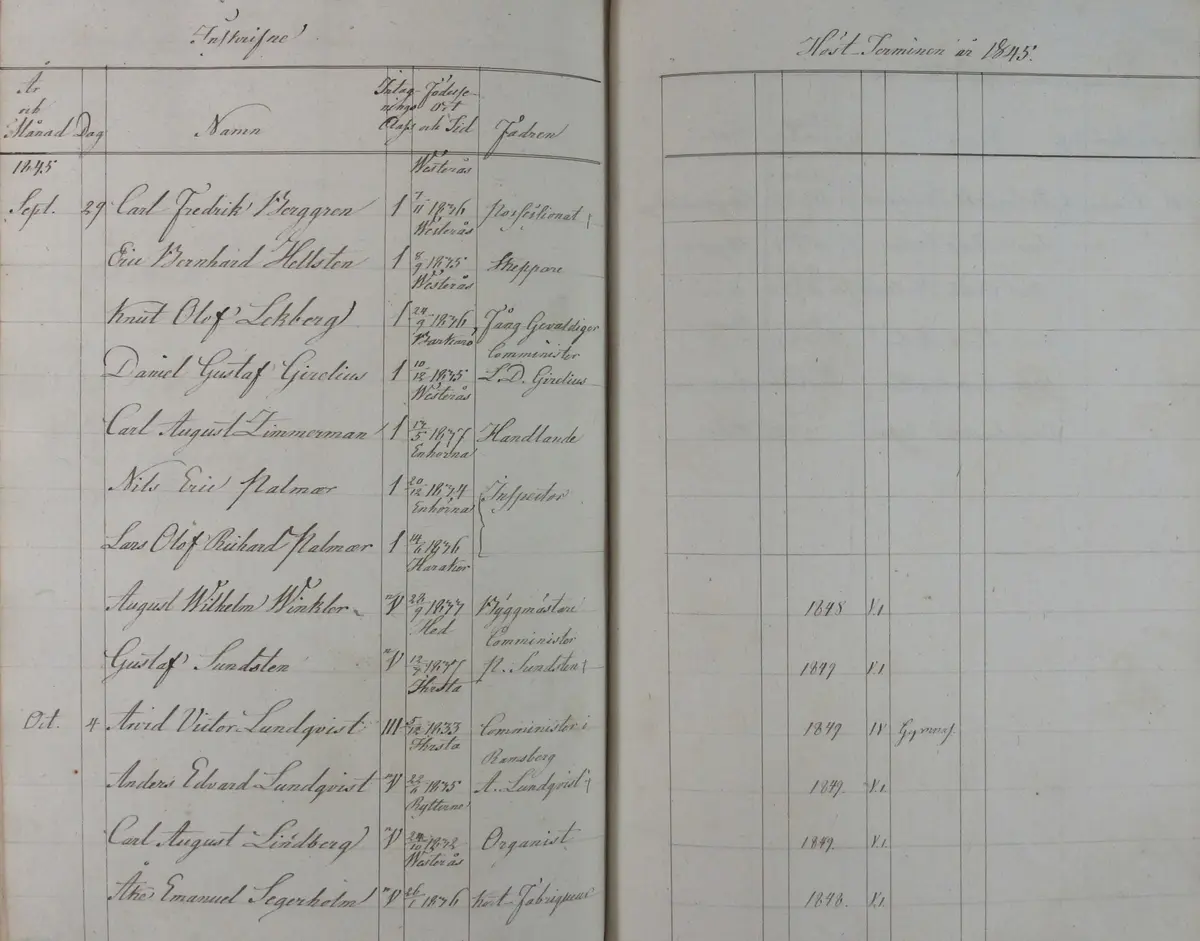 Inskrifne
Höst-Terminen år 1845.
År och Månad Dag Namn Intagnings Class Födelseort och Tid Fädren
1845 Westerås
Sept. 29 Carl Fredrik Berggren 1 7/11 1836 Possessionat
Westerås
Eric Bernhard Hellsten 1 8/9 1835 Skeppare
Westerås
Knut Olof Lekberg 1 24/9 1836 Fång Gevaldiger
Barkarö Comminister
Daniel Gustaf Girelius 1 10/12 1835 L. D. Girelius
Westerås
Carl August Zimmerman 1 17/5 1837 Handlande
Enhörna
Nils Eric Palmær 1 20/12 1834 Inspector
Enhörna
Lars Olof Richard Palmær 1 14/6 1836
Haraker
August Wilhelm Winkler V 23/9 1837 Byggmästare 1848 V.1.
Hed Comminister
Gustaf Sundsten V 12/7 1837 P. Sundsten 1849 V.1
Thrsta
Oct. 4 Arvid Victor Lundqvist III 5/12 1833 Comminister i 1849 IV Gymnas.
Thrsta Ramsberg
Anders Edvard Lundqvist V 22/6 1835 A. Lundqvist 1849. V.1.
Rytterne
Carl August Lindberg V 24/10 1832 Organist 1849. V.1.
Westerås
Åke Emanuel Segerholm V 26/1 1836 Fabriqueur 1848. V.1.